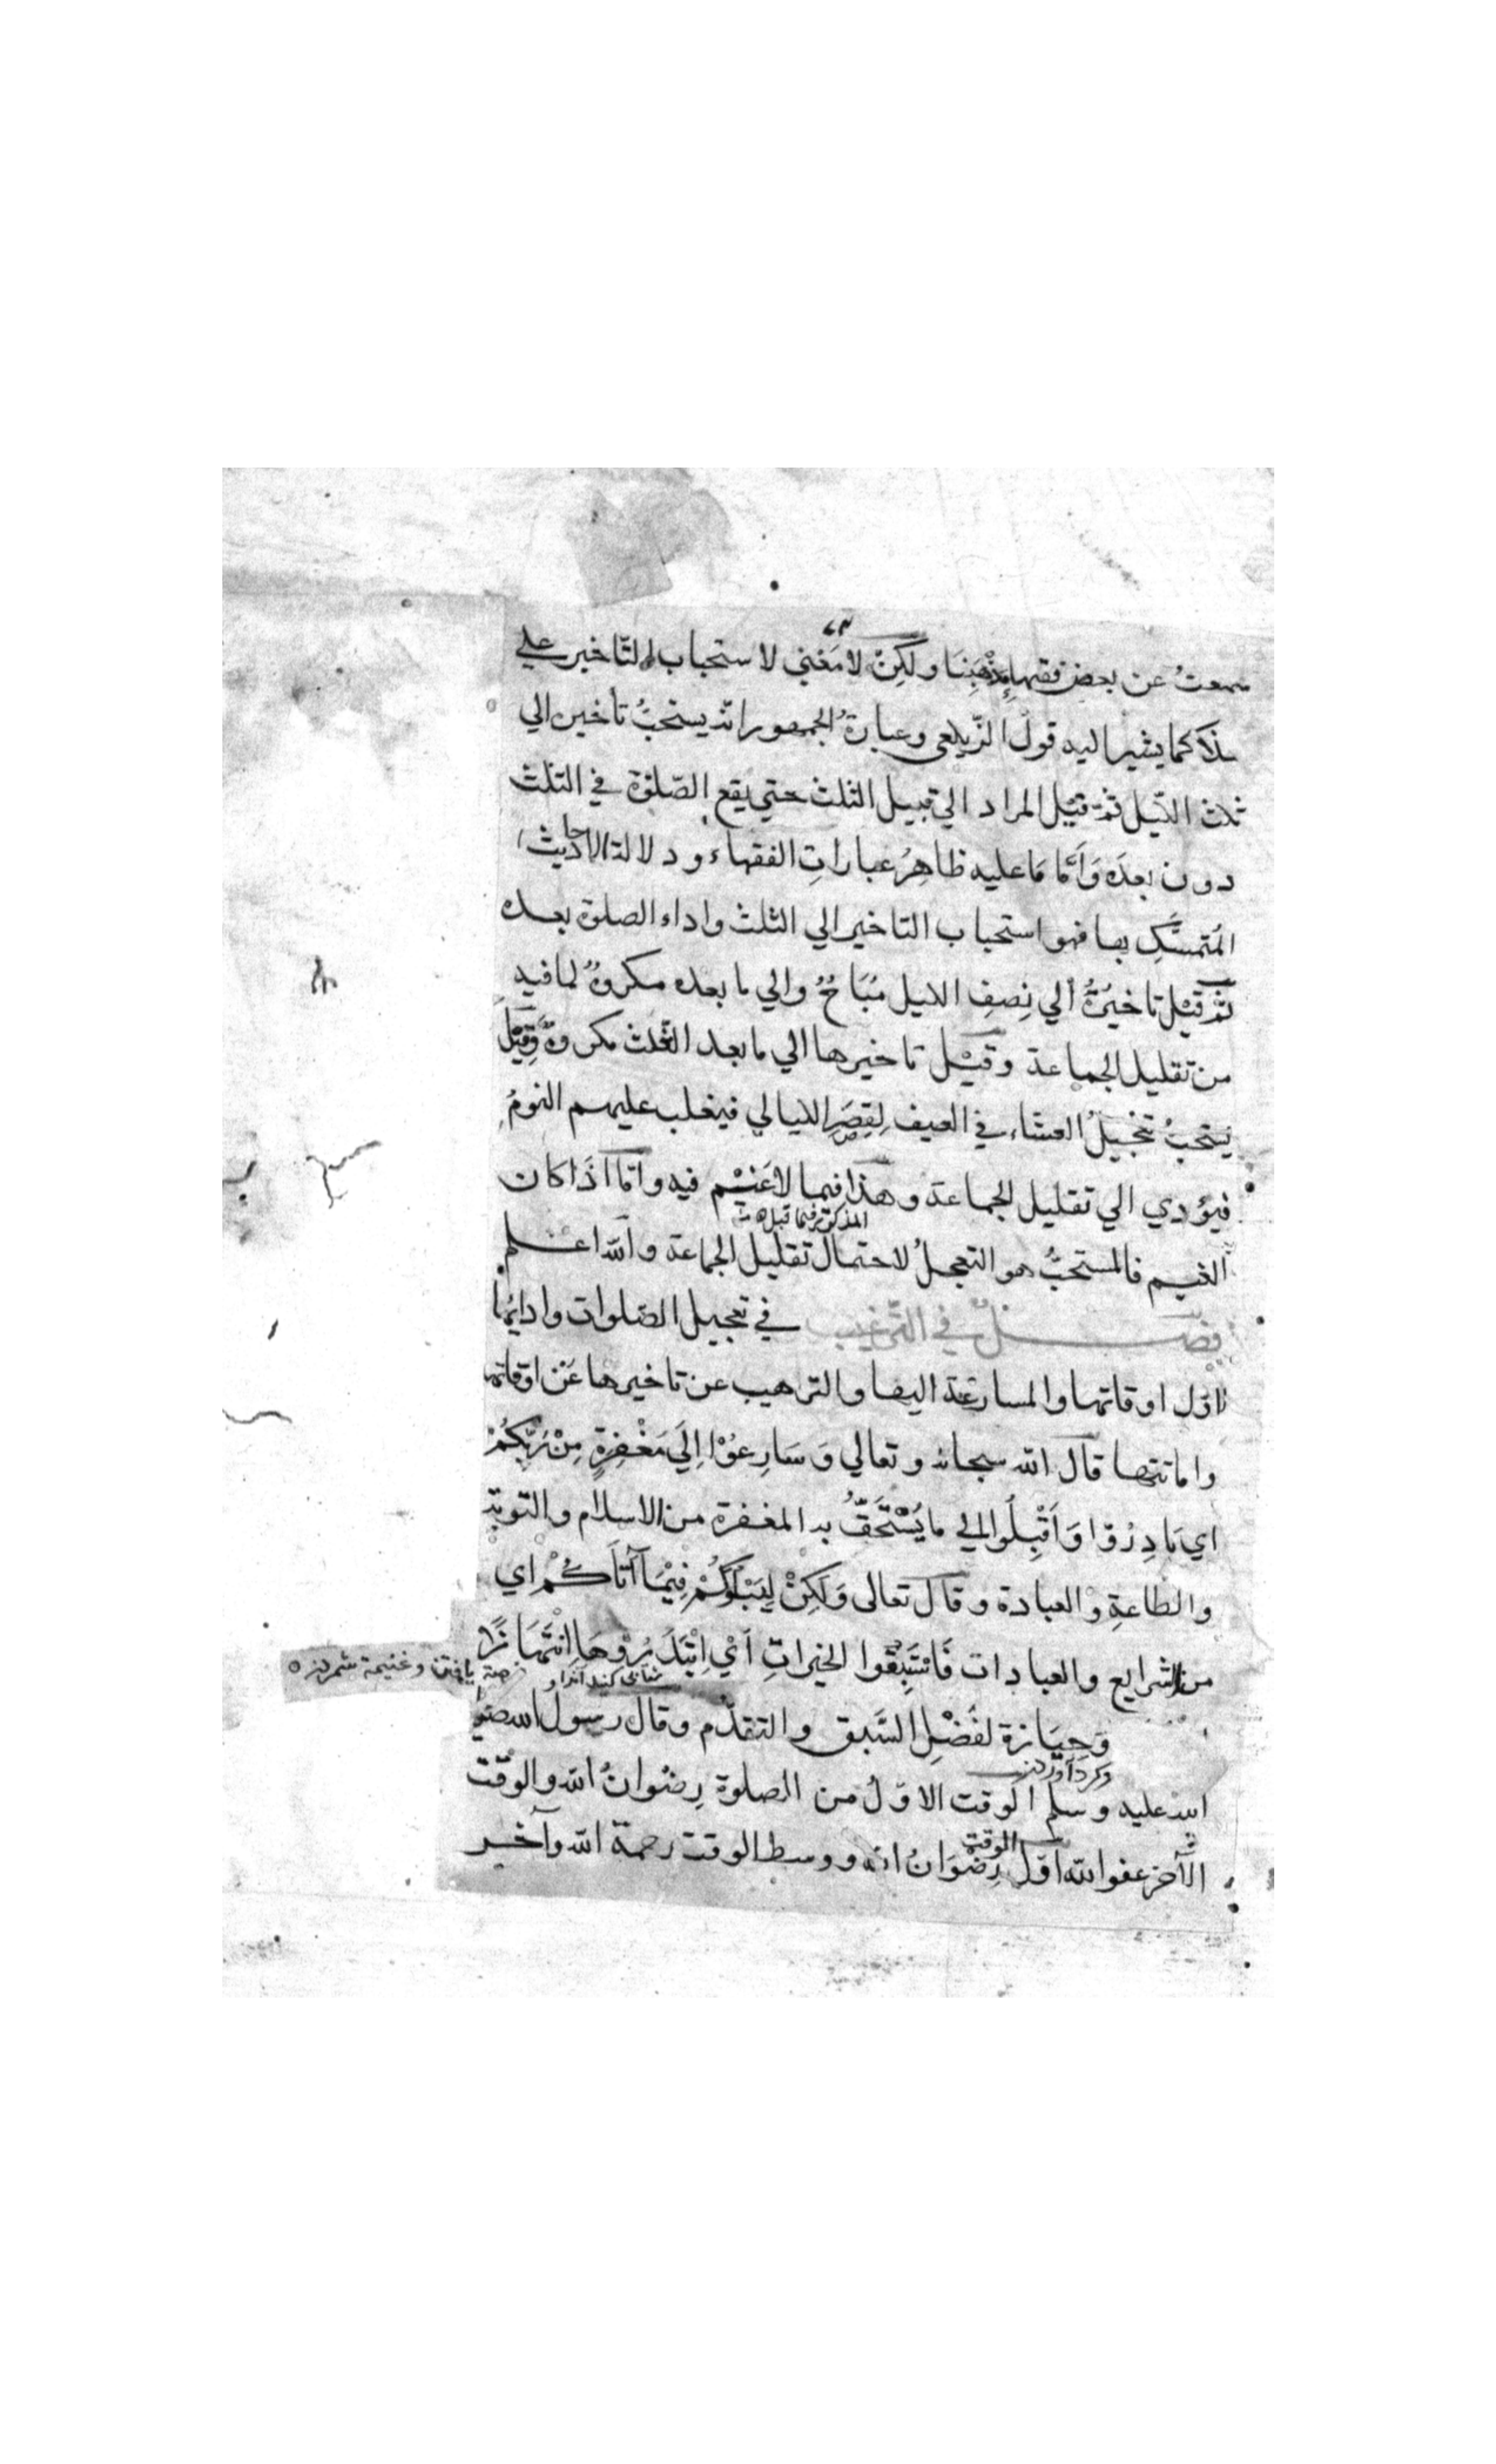 سمعتُ عن بعض فقهاءِ مذهبِنَا ولكِنْ لا مَعْنى لاستحباب التاخير علي
كما يشير اليه قولُ الزّيلعى وعبارةُ الجمهور انّه يستحبُّ تأخيره الي
ثلث اللّيل ثمّ قيْل المراد الي قبيل الثلث حتي يقع الصّلوٰة في الثلث
دون بعدَه وَاَمَّا مَا عليه ظاهِرُ عبارَاتِ الفقهاء ودلالة الاحاديث
المُتمسَّكِ بها فهو استحباب التاخير الي الثلث واداء الصلوة بعده
ثمّ قيْل تاخيْرُهُ الي نِصفِ الليل مُبَاحٌ والي ما بعده مكروهٌ لما فيه
من تقليل الجماعة وقيْل تاخيرها الي ما بعد الثلث مكروهٌ وَقِيْلَ
يَستحبُّ تعجيلُ العشاء في الصيف لِقِصَرِ الليالي فيغلب عليهم النومُ
فيؤدي الي تقليل الجماعة وهذا فيما لاغَيْم فيه وامّا اذَا كان
المذكور فيما قبله
الغيم فالمستحبُّ هو التعجيلُ لاحتمال تقليل الجماعة والله اعلم
فصلٌ في التّرغيب في تعجيل الصّلوات وادائِها
اوّل اوقاتها والمسارعة اليها والترهيب عن تاخيرها عَن اوقاتها
واماتتها قال الله سبحانه وتعالي وَسَارِعُوْا اِلَي مَغْفِرَةٍ مِنْ رَبِّكُمْ
اي بَادِرُوْا وَاَقْبِلُوا الي ما يُسْتَحَقُّ به المغفرة من الاسلام والتوبة
والطاعةِ والعبادة وقال تعالى وَلَكِنْ لِيَبْلُوَكُمْ فِيْمَا آتَاكُمْ اي
من الشرايع والعبادات فَاسْتَبِقُوا الخيراتِ اَيْ اِبْتَدِرُوْهَا اِنْتِهَازًا
شتابى كنيد آنرا و
فرصة يافتن وغنيمة شمردن
وَحِيَازة لفَضْلِ السَّبق والتقدّم وقال رسول الله صلّي
وگرد آوردن
الله عليه وسلم الوقت الاوّلُ من الصلوة رِضْوانُ الله والوَقت
الوقت
الآخر عفو الله اوّل رِضْوَانُ الله ووسط الوقت رحمة الله وآخر